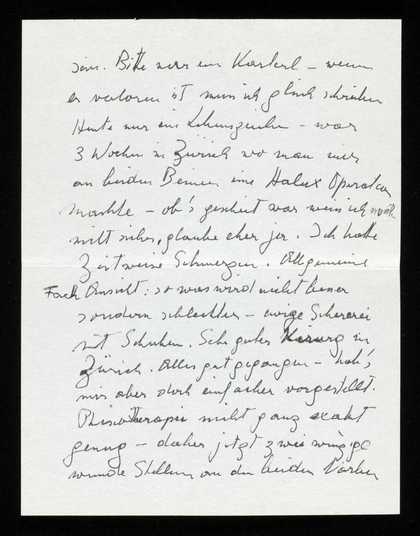 sein. Bitte nur ein Karterl – wenn
er verloren ist muss ich gleich schreiben
Heute nur ein Lebenszeichen – war
3 Wochen in Zürich wo man mir
an beiden Beinen eine Halux Operation
machte – ob's gescheit war weiss ich noch
nicht sicher, glaube eher ja. Ich hatte
Zeitweise Schmerzen. Allgemeine
Fach Ansicht: so was wird nicht besser
sondern schlechter – ewige Schererei
mit Schuhen. Sehr guter Kirurg in
Zürich. Alles gut gegangen – hab's
mir aber doch einfacher vorgestellt.
Phisiotherapie nicht ganz exakt
genug – daher jetzt zwei winzige
wunde Stellen an den beiden Narben